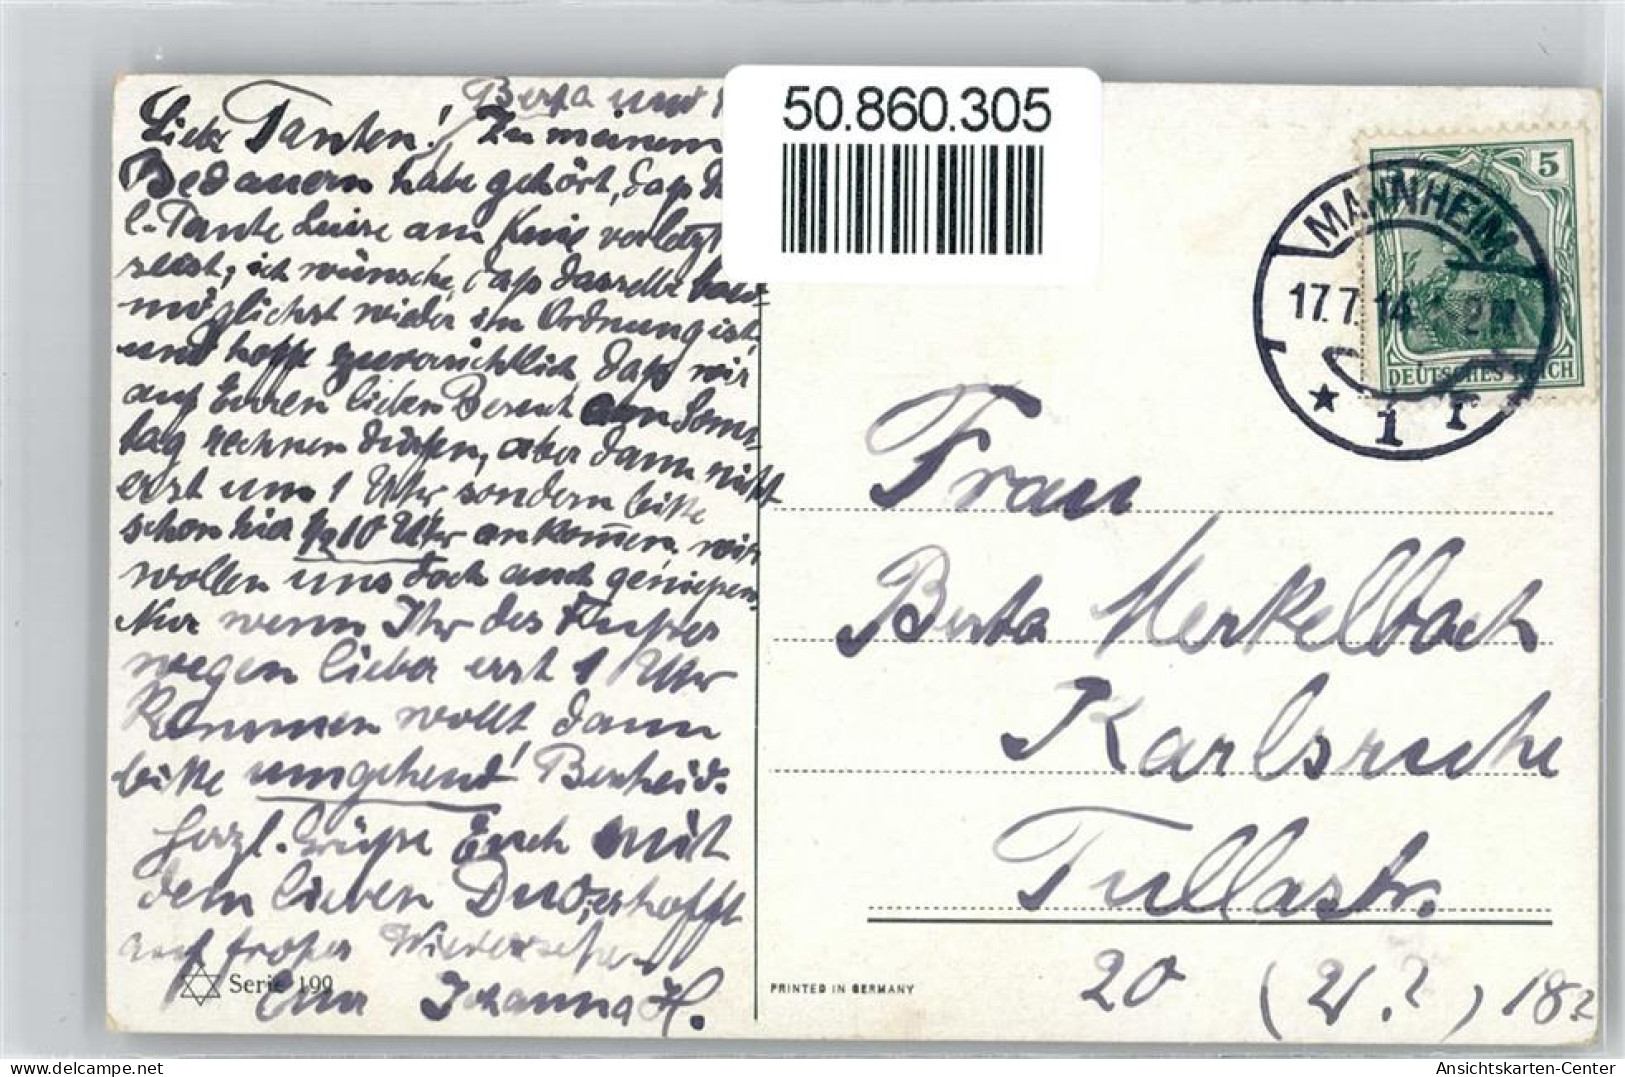 Berta und
Liebe Tanten! Zu meinem
Bedauern habe gehört, daß d
l. Tante Luise am Knie verletzt
seist, ich wünsche, daß dasselbe bald-
möglichst wieder in Ordnung ist,
und hoffe zuversichtlich, daß wir
auf Euren lieben Besuch am Sonn-
tag rechnen dürfen, aber dann nicht
erst um 1 Uhr sondern bitte
schon hier 1/2 10 Uhr ankommen, wir
wollen uns doch auch genießen.
Nur wenn Ihr des Fußes
wegen lieber erst 1 Uhr
kommen wollt dann
bitte umgehend! Bescheid.
Herzl. Grüße Euch mit
dem lieben es hofft
auf frohes Wiedersehen
Eure Johanna H.
Serie 199
50.860.305
MANNHEIM
17.7.14
* 1 r
5
DEUTSCHES REICH
Frau
Berta Merkelbach
Karlsruhe
Tullastr.
20 (21?) 18?
PRINTED IN GERMANY
Ansichtskarten-Center